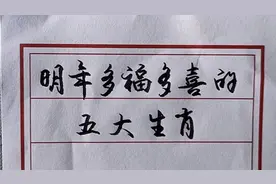 明年多福多喜的
五大生肖